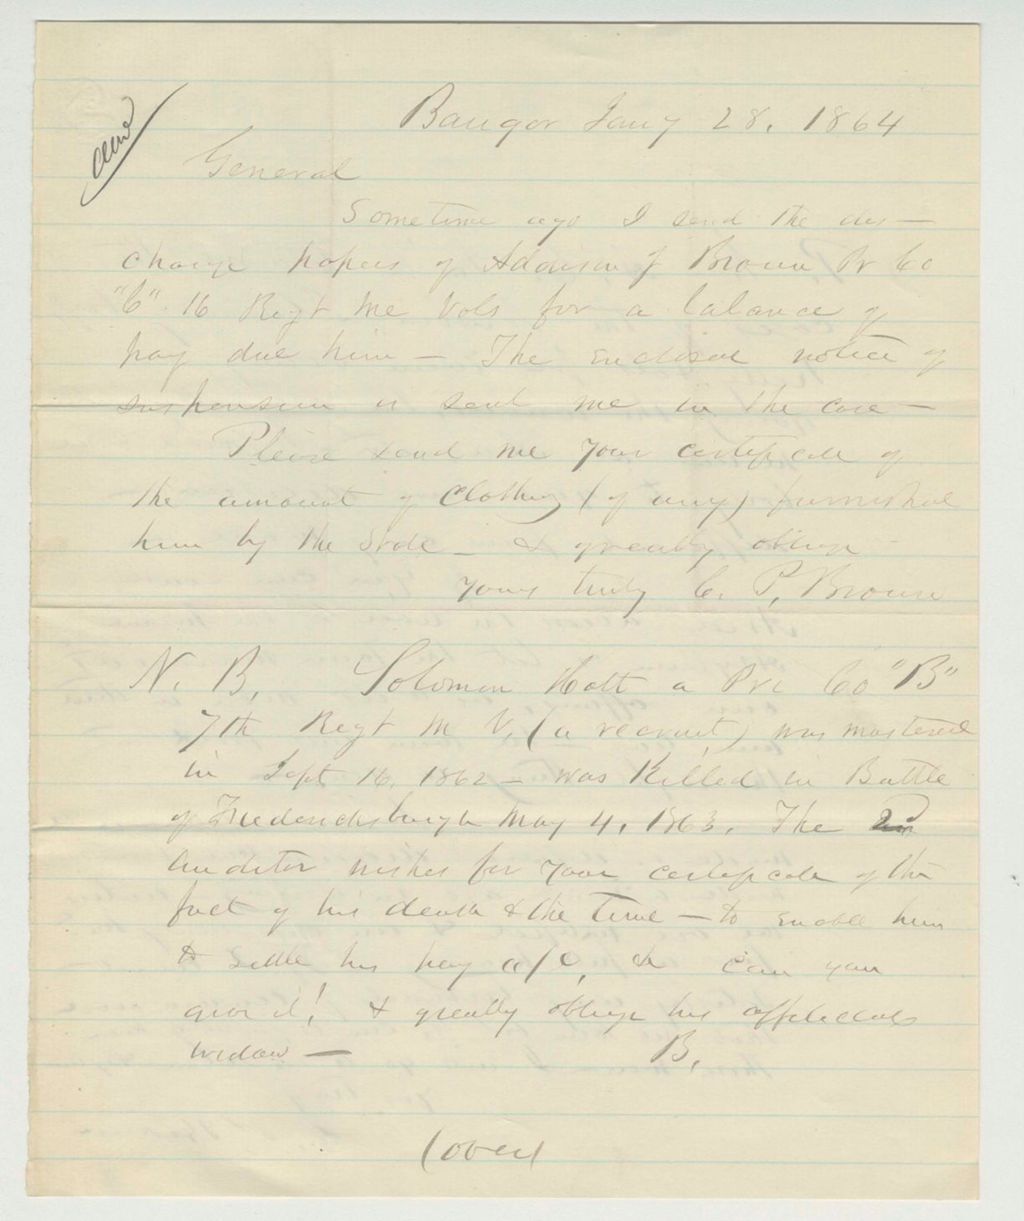 Bangor Jany 28, 1864
General
Sometime ago I send the dis-
charge papers of Addison J Brown Pr Co
"C" 16 Regt Me Vols for a balance of
pay due him — The enclosed notice of
suspension is sent me in the case —
Please send me your certificate of
the amount of clothing (if any) furnished
him by the State — & greatly oblige
yours truly C. P. Brown
N. B. Solomon Hatt a Pri Co "B"
7th Regt M V. (a recruit) was mustered
in Sept 16, 1862 — was Killed in Battle
of Fredericksburgh May 4, 1863. The
Auditor wishes for your certificate of the
fact of his death & the time — to enable him
to settle his pay a/c, Can you
give it! & greatly oblige his afflicted
widow — B.
(over)